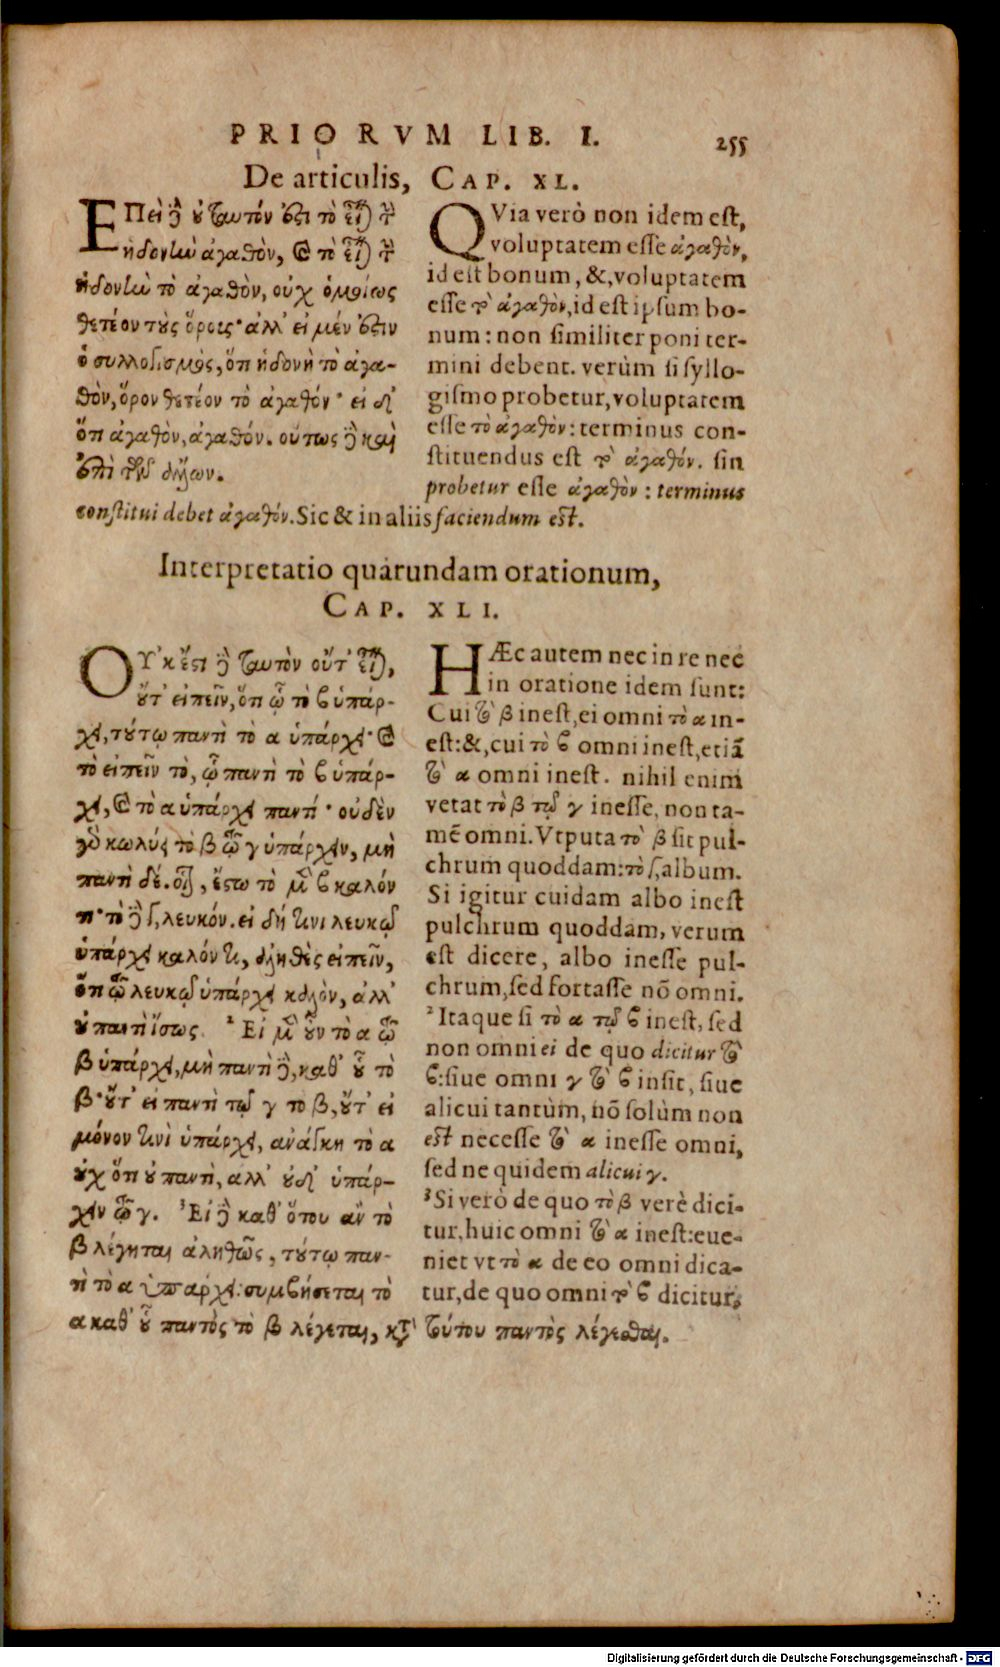 PRIORVM LIB. I. 255
De articulis, CAP. XL.
ΕΠεὶ δ' οὐ ταυτόν ἐστι τὸ εἶναι τὴν
ἡδονὴν ἀγαθὸν, καὶ τὸ εἶναι τὴν
ἡδονὴν τὸ ἀγαθὸν, οὐχ ὁμοίως
θετέον τοὺς ὅρους· ἀλλ' εἰ μέν ἐστιν
ὁ συλλογισμὸς, ὅτι ἡδονὴ τὸ ἀγα-
θὸν, ὅρον θετέον τὸ ἀγαθόν· εἰ δ'
ὅτι ἀγαθὸν, ἀγαθόν. οὕτως δὲ καὶ
ἐπὶ τῶν ἄλλων.
QVia verò non idem est,
voluptatem esse ἀγαθὸν,
id est bonum, &, voluptatem
esse τὸ ἀγαθὸν, id est ipsum bo-
num: non similiter poni ter-
mini debent. verùm si syllo-
gismo probetur, voluptatem
esse τὸ ἀγαθὸν: terminus con-
stituendus est τὸ ἀγαθόν. sin
probetur esse ἀγαθὸν: terminus
constitui debet ἀγαθόν. Sic & in aliis faciendum est.
Interpretatio quarundam orationum,
CAP. XLI.
ΟΥ'κ ἔστι δὲ ταυτὸν οὔτ' εἶναι,
οὔτ' εἰπεῖν, ὅτι ᾧ τὸ β ὑπάρ-
χει, τούτῳ παντὶ τὸ α ὑπάρχει· καὶ
τὸ εἰπεῖν τὸ, ᾧ παντὶ τὸ β ὑπάρ-
χει, καὶ τὸ α ὑπάρχει παντί· οὐδὲν
γὰρ κωλύει τὸ β τῷ γ ὑπάρχειν, μὴ
παντὶ δέ. οἷον, ἔστω τὸ μὲν β καλόν
τι· τὸ δὲ γ, λευκόν. εἰ δή τινι λευκῷ
ὑπάρχει καλόν τι, ἀληθὲς εἰπεῖν,
ὅτι τῷ λευκῷ ὑπάρχει καλὸν, ἀλλ'
οὐ παντὶ ἴσως. ² Εἰ μὲν οὖν τὸ α τῷ
β ὑπάρχει, μὴ παντὶ δὲ, καθ' οὗ τὸ
β· οὔτ' εἰ παντὶ τῷ γ τὸ β, οὔτ' εἰ
μόνον τινὶ ὑπάρχει, ἀνάγκη τὸ α
οὐχ ὅτι οὐ παντὶ, ἀλλ' οὐδ' ὑπάρ-
χειν τῷ γ. ³Εἰ δὲ καθ' ὅτου ἂν τὸ
β λέγηται ἀληθῶς, τούτῳ παν-
τὶ τὸ α ὑπάρχει: συμβήσεται τὸ
α καθ' οὗ παντὸς τὸ β λέγεται, κατὰ τούτου παντὸς λέγεσθαι.
HÆc autem nec in re nec
in oratione idem sunt:
Cui τὸ β inest, ei omni τὸ α in-
est: &, cui τὸ β omni inest, etiā
τὸ α omni inest. nihil enim
vetat τὸ β τῷ γ inesse, non ta-
mē omni. Vtputa τὸ β sit pul-
chrum quoddam: τὸ γ, album.
Si igitur cuidam albo inest
pulchrum quoddam, verum
est dicere, albo inesse pul-
chrum, sed fortasse nō omni.
²Itaque si τὸ α τῷ β inest, sed
non omni ei de quo dicitur τὸ
β: siue omni γ τὸ β insit, siue
alicui tantùm, nō solùm non
est necesse τὸ α inesse omni,
sed ne quidem alicui γ.
³Si verò de quo τὸ β verè dici-
tur, huic omni τὸ α inest: eue-
niet vt τὸ α de eo omni dica-
tur, de quo omni τὸ β dicitur.
Digitalisierung gefördert durch die Deutsche Forschungsgemeinschaft - DFG